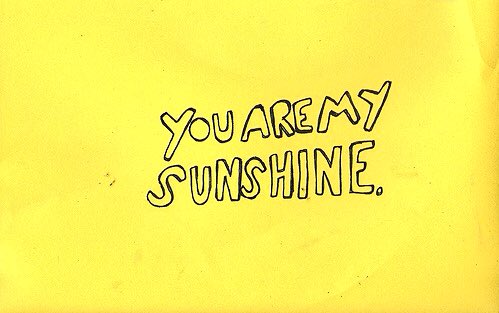 YOU ARE MY
SUNSHINE.